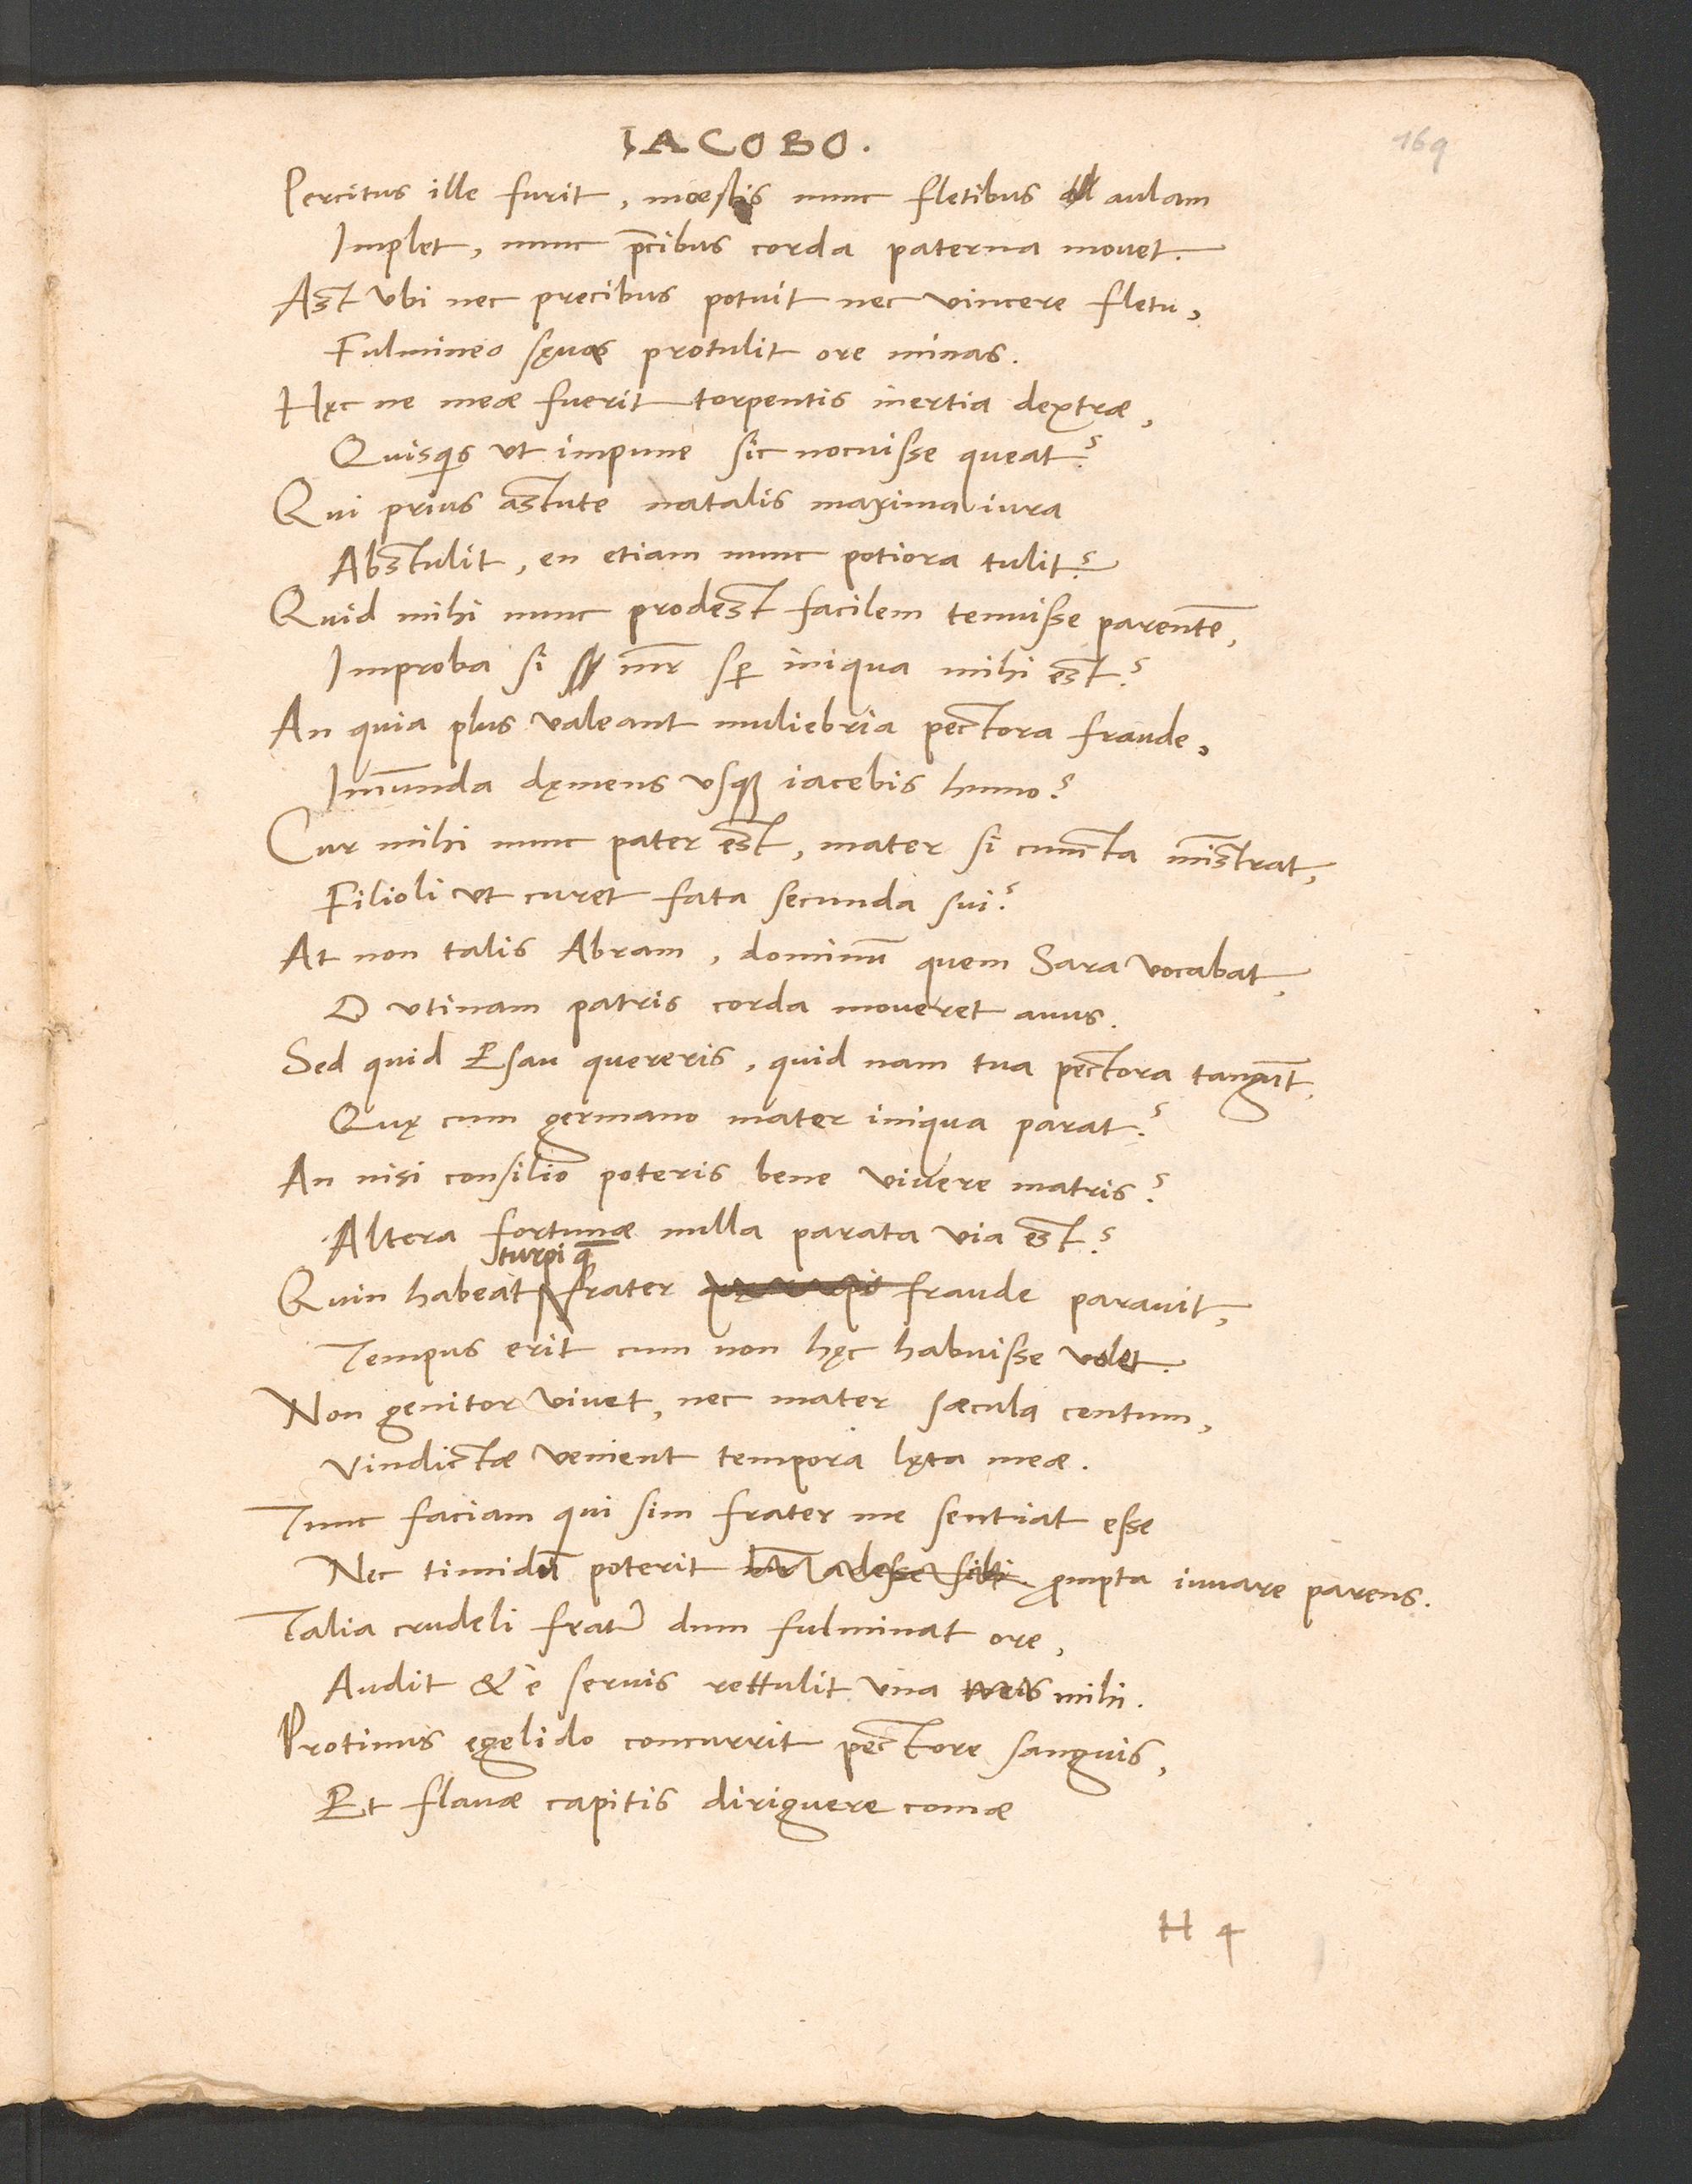 IACOBO.
169
Percitus ille furit, mœstis nunc fletibus aulam
Implet, nunc p̄cibus corda paterna mouet.
Ast vbi nec precibus potuit nec vincere fletu,
Fulmineo sęuas protulit ore minas.
Hęc ne meæ fuerit torpentis inertia dextræ,
Quisq̃s vt impune sic nocuisse queat?
Qui prius astute natalis maxima iura
Abstulit, en etiam nunc potiora tulit?
Quid mihi nunc prodest facilem tenuisse parentẽ,
Improba si mr̃ sp̱ iniqua mihi est?
An quia plus valeant muliebria pectora fraude,
Im̃unda dęmens vsq̃ iacebis humo?
Cur mihi nunc pater est, mater si cuncta mĩstrat,
Filioli vt curet fata secunda sui?
At non talis Abram, dominũ quem Sara vocabat,
O vtinam patris corda moueret auus.
Sed quid Esau quereris, quid nam tua pectora tangũt,
Quę cum germano mater iniqua parat?
An nisi consilio poteris bene viuere matris?
Altera fortunæ nulla parata via est?
turpi q̃
Quin habeat frater fraude parauit,
Tempus erit cum non hęc habuisse volet.
Non genitor viuet, nec mater sæcula centum,
Vindictæ venient tempora lęta meæ.
Tunc faciam qui sim frater me sentiat esse
Nec timidũ poterit p̱mpta iuuare parens.
Talia crudeli frater dum fulminat ore,
Audit & è seruis rettulit vna mihi.
Protinus egelido concurrit pectore sanguis,
Et flauæ capitis diriguere comæ
H 4